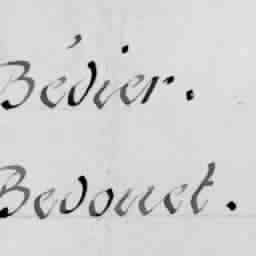 Bédier.
Bedouet.